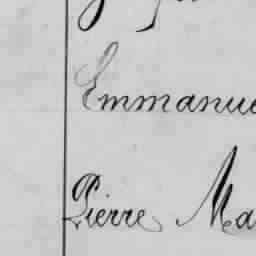 Emmanue
Pierre Ma